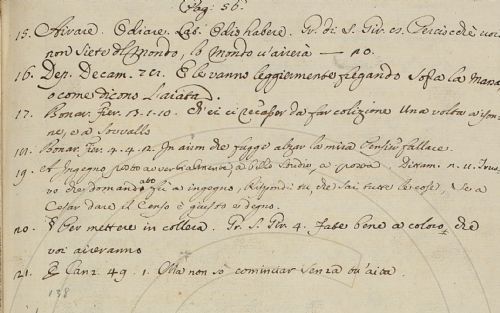 Pag. 56.
15. Aivare. Odiare. Lat. Odio habere. Gr. di S. Gir. 25. Perciocchè voi
non siete del Mondo, lo Mondo v'aiverà — 20.
16. Dep. Decam. 72. E le vanno leggiermente fregando sopra la
o come dicono l'aiata
17. Bonar. Fier. 3. 1. 10. ci ci da far colizione Una volta
ne, e a Sovvallo
Bonar. Fier. 4. 4. 12. In aium che fugge alzar la mira fallace.
19. Ingegno posto avverbialmente, a bello studio, a posta. Dittam. 2. 11.
vo che domando a ingegno, Rispondi tu che sai tutte le cose, Se a
Cesar dare il Censo è giusto e degno.
20. Per mettere in collera. Gr. S. Gir. 4. Fate bene a coloro, che
voi aiveranno
21. Canz. 49. 1. Ma non so cominciar senza tu' aita.
138